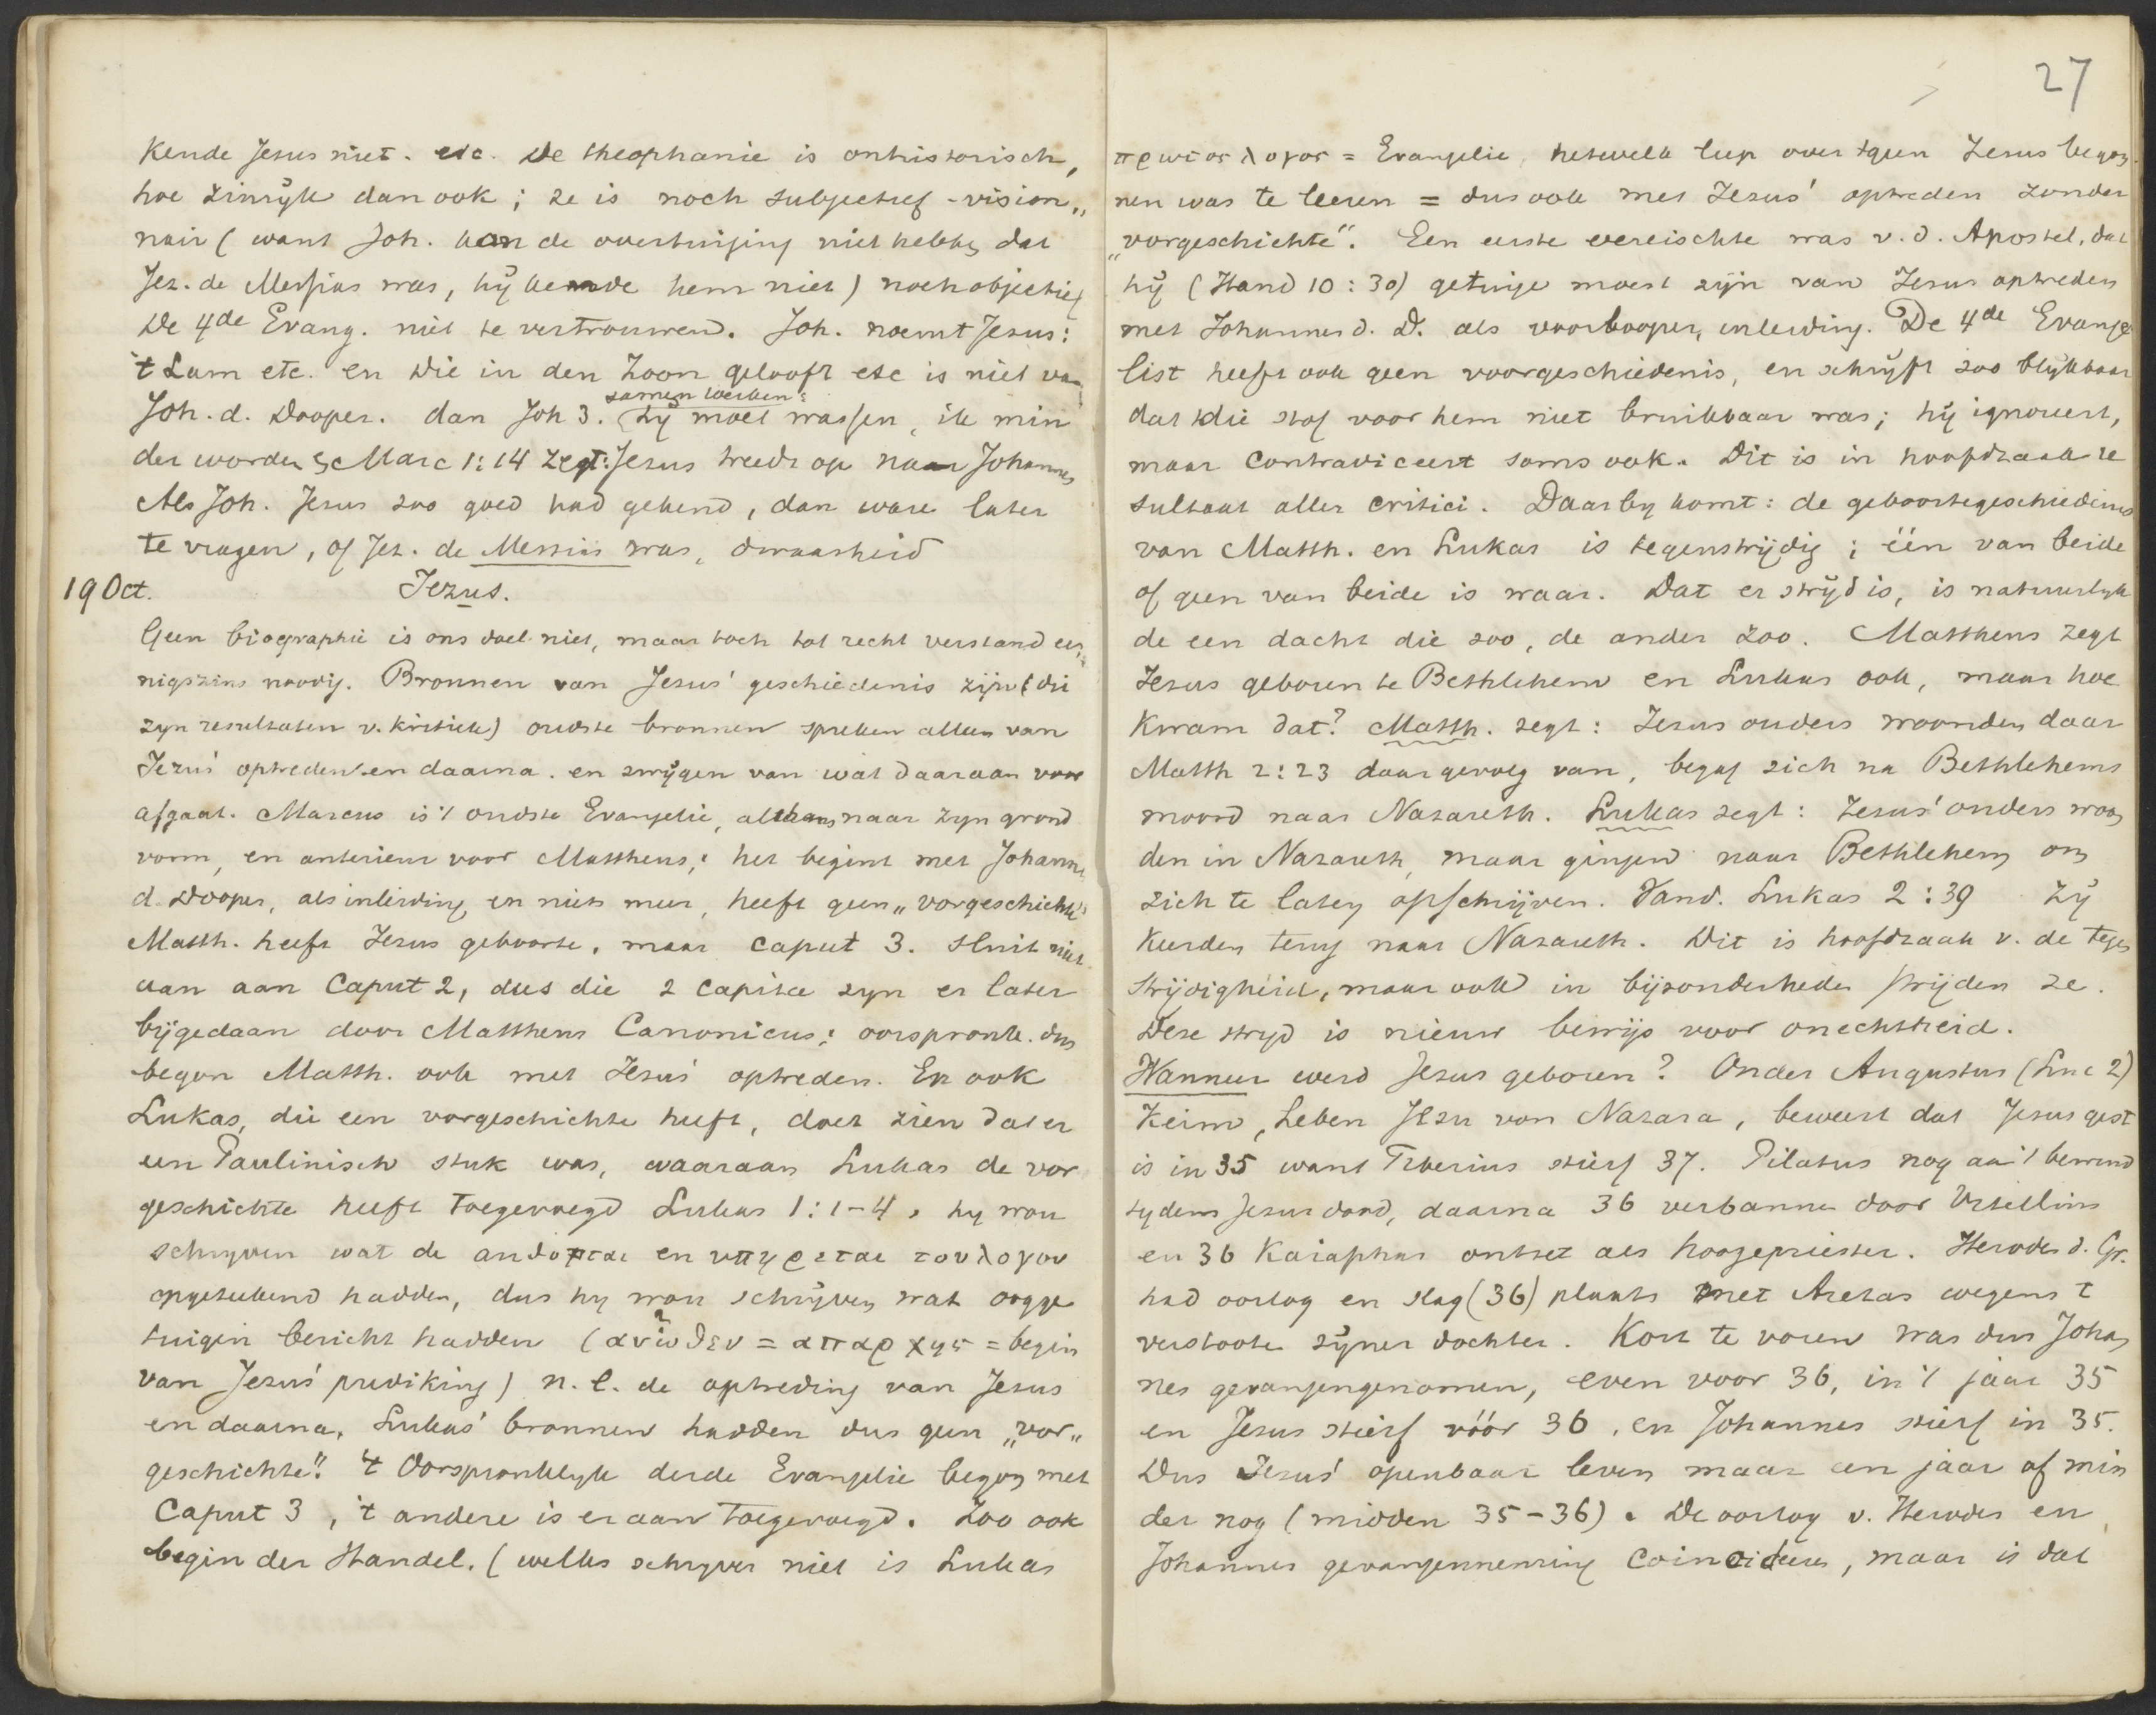 kende Jesus niet. etc. De theophanie is onhistorisch,
hoe zinryk dan ook; ze is noch subjectief-vision„
nair (want Joh. kon de overtuiging niet hebben dat
Jez. de Messias was, hy kende hem niet) noch objectief
De 4de Evang. niet te vertrouwen. Joh. noemt Jesus:
't Lam etc. en Die in den Zoon gelooft etc is niet van
samen werken:
Joh. d. Dooper. dan Joh 3. (hy moet wassen, ik min
der worden) Marc 1:14 zegt: Jesus treedt op na Johannes
Als Joh. Jesus zoo goed had gekend, dan ware later
te vragen, of Jez. de Messias was, dwaasheid
19 Oct. Jezus.
Geen biographie is ons doel niet, maar toch tot recht verstand ee„
nigszins noodig. Bronnen van Jesus' geschiedenis zijn (die
zyn resultaten v. kritiek) oudste bronnen spreken alleen van
Jezus' optreden en daarna. en zwygen van wat daaraan voor
afgaat. Marcus is 't oudste Evangelie, althans naar zyn grond
vorm, en anterieur voor Mattheus; het begint met Johannes
d. Dooper, als inleiding en niets meer, heeft geen „vorgeschichte"
Matth. heeft Jezus geboorte, maar caput 3. sluit niet
aan aan Caput 2, dus die 2 capita zyn er later
bijgedaan door Mattheus Canonicus; oorspronk. dus
begon Matth. ook met Jesus' optreden. En ook
Lukas, die een vorgeschichte heeft, doet zien dat er
een Paulinisch stuk was, waaraan Lukas de vor
geschichte heeft toegevoegd Lukas 1:1-4, hy wou
schryven wat de αυδοπται en υπηρεται του λογου
opgeteekend hadden, dus hy wou schrijven wat oogge
tuigen bericht hadden (ανωθεν = απαρχης = begin
van Jezus' prediking) n.l. de optreding van Jesus
en daarna. Lukas' bronnen hadden dus geen „vor„
geschichte". 't Oorspronklyk derde Evangelie begon met
Caput 3, 't andere is er aan toegevoegd. Zoo ook
begin der Handel. (welks schryver niet is Lukas
27
πρωτος λογος = Evangelie, hetwelk liep over 'tgeen Jesus begon
nen was te leeren = dus ook met Jezus' optreden zonder
„vorgeschichte". Een eerste vereischte was v. d. Apostel, dat
hy (Hand 10:30) getuige moest zijn van Jesus optreden
met Johannes d. D. als voorlooper, inleiding. De 4de Evange
list heeft ook geen voorgeschiedenis, en schryft zoo blykbaar
dat die stof voor hem niet bruikbaar was; hy ignoreert,
maar contradiceert soms ook. Dit is in hoofdzaak re
sultaat aller critici. Daarby komt: de geboortegeschiedenis
van Matth. en Lukas is tegenstrijdig; één van beide
of geen van beide is waar. Dat er stryd is, is natuurlyk
de een dacht die zoo, de ander zoo. Mattheus zegt
Jesus geboren te Bethlehem en Lukas ook, maar hoe
kwam dat? Matth. zegt: Jesus ouders woonden daar
Matth 2:23 daar gevolg van, begaf zich na Bethlehems
moord naar Nazareth. Lukas zegt: Jesus' ouders woon
den in Nazareth, maar gingen naar Bethlehem om
zich te laten opschrijven. Vand. Lukas 2:39 Zy
keerden terug naar Nazareth. Dit is hoofdzaak v. de tegen
strijdigheid, maar ook in bijzonderheden strijden ze.
Deze stryd is nieuw bewijs voor onechtheid.
Wanneer werd Jesus geboren? Onder Augustus (Luc 2)
Keim, Leben Jesu von Nazara, beweert dat Jesus gest
is in 35 want Tiberius stierf 37. Pilatus nog aan 't bewind
tydens Jesus dood, daarna 36 verbannen door Vitellius
en 36 Kaiaphas ontzet als hoogepriester. Herodes d. Gr.
had oorlog en slag (36) plaats met Aretas wegens 't
verstooten zijner dochter. Kort te voren was dus Johan
nes gevangengenomen, even voor 36, in 't jaar 35
en Jesus stierf vóór 36, en Johannes stierf in 35.
Dus Jesus' openbaar leven maar een jaar of min
der nog (midden 35-36). De oorlog v. Herodes en
Johannes gevangenneming coincideeren, maar is dat